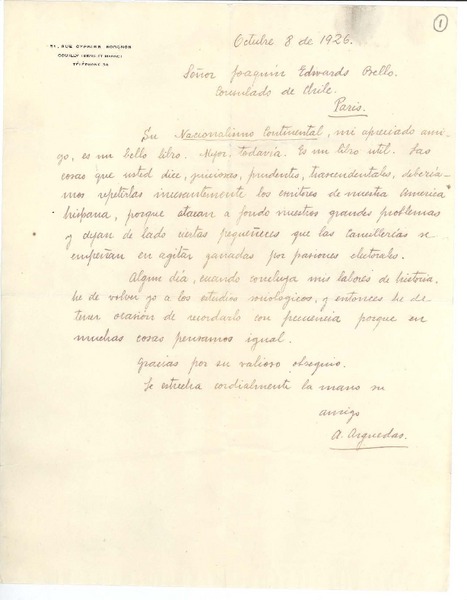 1
51, RUE CYPRIEN BORGNON
COUILLY (SEINE ET MARNE)
TÉLÉPHONE 34
Octubre 8 de 1926.
Señor Joaquín Edwards Bello.
Consulado de Chile.
París.
Su Nacionalismo Continental, mi apreciado ami-
go, es un bello libro. Mejor todavía. Es un libro util. Las
cosas que usted dice, juiciosas, prudentes, trascendentales, debería-
mos repetirlas incesantemente los escritores de nuestra America
hispana, porque atacan a fondo nuestros grandes problemas
y dejan de lado ciertas pequeñeces que las cancillerías se
empeñan en agitar ganadas por pasiones electorales.
Algun día, cuando concluya mis labores de historia,
he de volver yo a los estudios sociologicos, y entonces he de
tener ocasión de recordarlo con frecuencia porque en
muchas cosas pensamos igual.
Gracias por su valioso obsequio.
Le estrecha cordialmente la mano su
amigo
A. Arguedas.